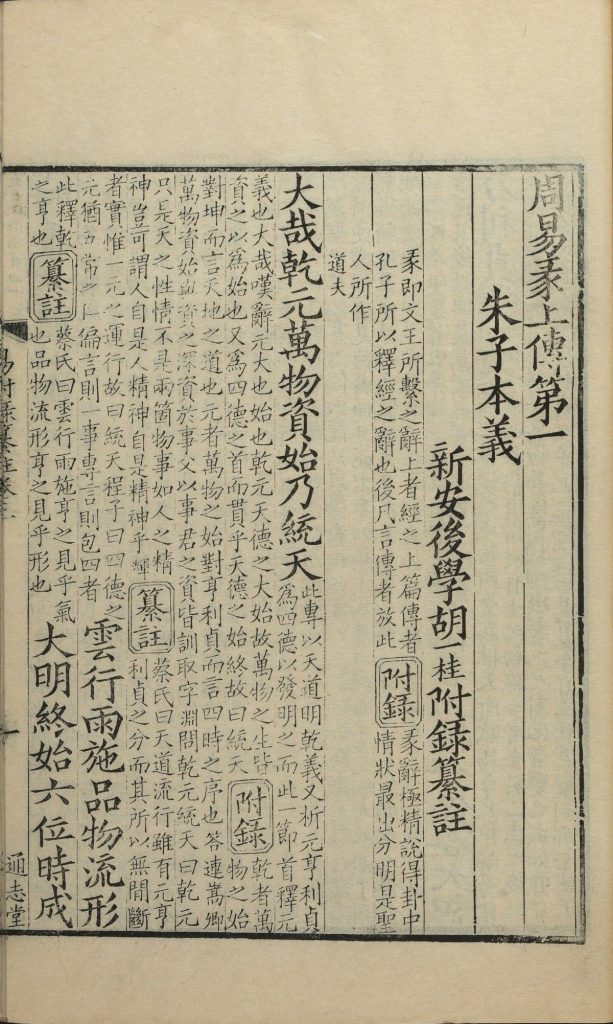 周易彖上傳第一
朱子本義
新安後學胡一桂附録纂註
彖即文王所繫之辭上者經之上篇傳者
孔子所以釋經之辭也後凡言傳者放此
附録
彖辭極精說得卦中
情狀最出分明是聖
人所作
道夫
大哉乾元萬物資始乃統天
此專以天道明乾義又析元亨利貞
爲四德以發明之而此一節首釋元
義也大哉嘆辭元大也始也乾元天德之大始故萬物之生皆
資之以爲始也又爲四德之首而貫乎天德之始終故曰統天
附録
乾者萬
物之始
對坤而言天地之道也元者萬物之始對亨利貞而言四時之序也答連嵩卿
萬物資始與資之深資於事父以事君之資皆訓取字淵問乾元統天曰乾元
只是天之性情不是兩箇物事如人之精
神豈可謂人自是人精神自是精神乎㽦
纂註
蔡氏曰天道流行雖有元亨
利貞之分而其所以無間斷
者實惟一元之運行故曰統天程子曰四德之
元猶五常之仁偏言則一事專言則包四者
雲行雨施品物流形
此釋乾
之亨也
纂註
蔡氏曰雲行雨施亨之見乎氣
也品物流形亨之見乎形也
大明終始六位時成
一
通志堂